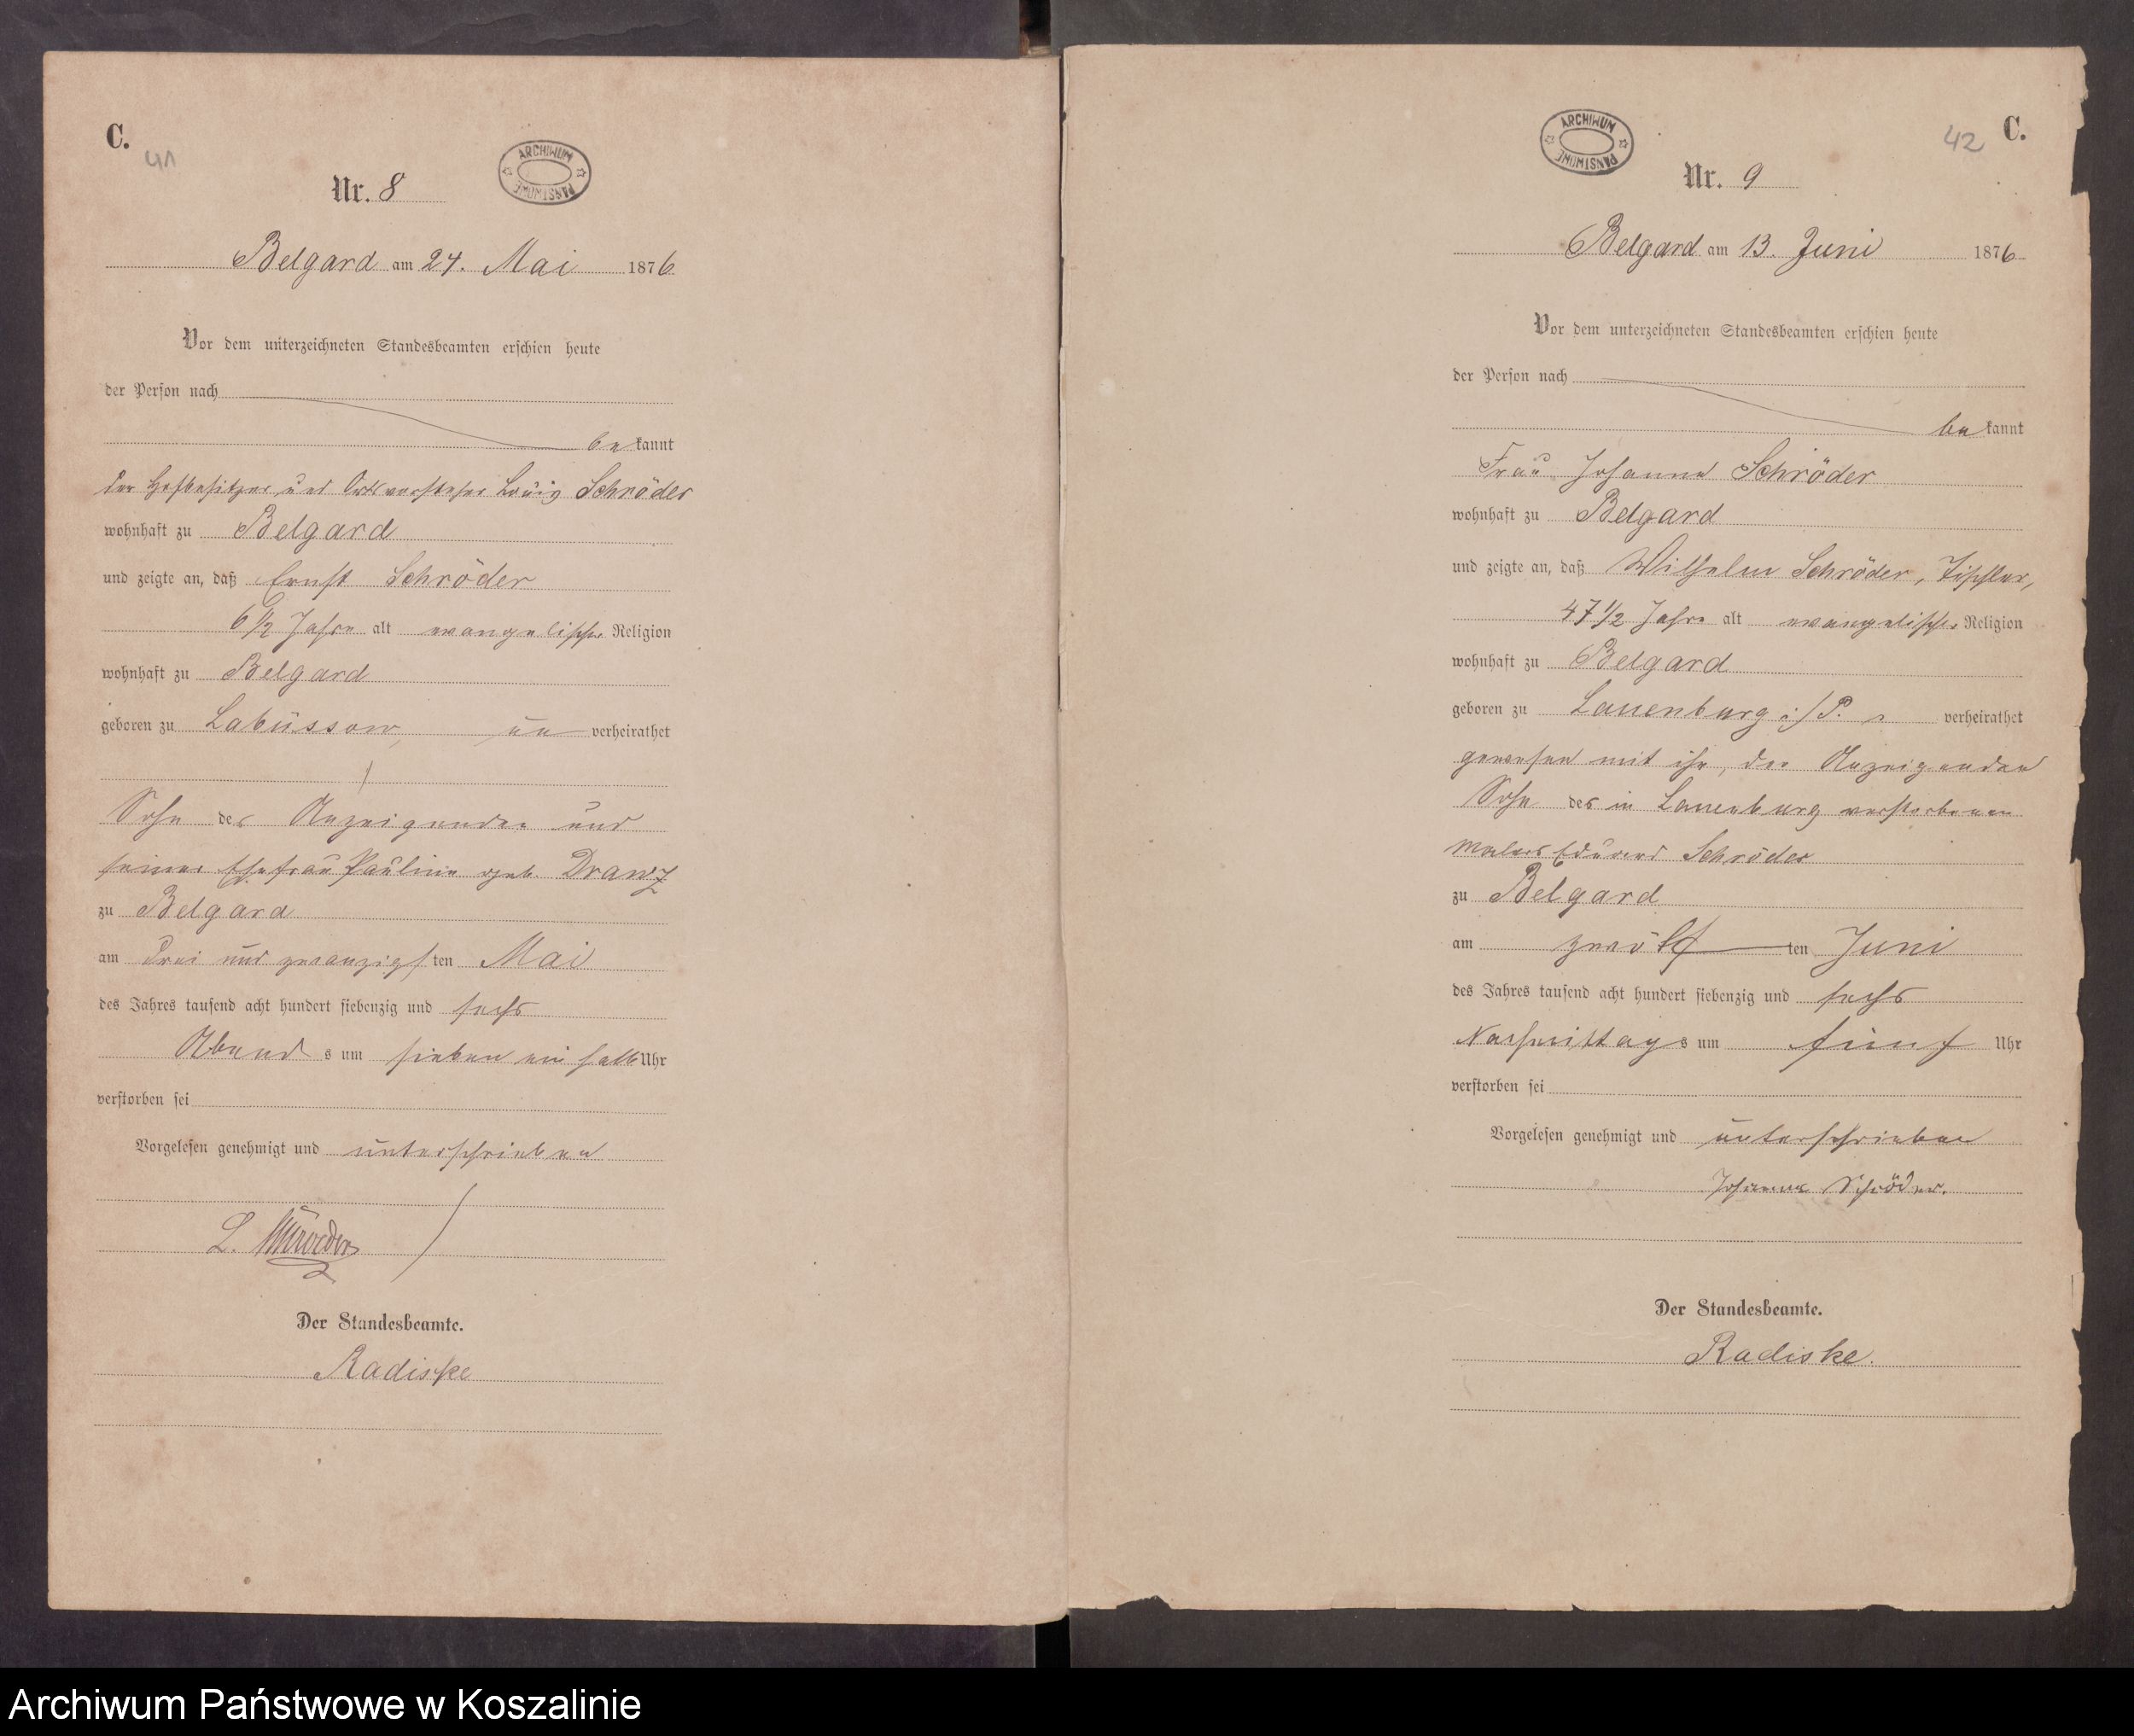 C.
41
ARCHIWUM PAŃSTWOWE
Nr. 8
Belgard am 24. Mai 1876
Vor dem unterzeichneten Standesbeamten erschien heute
der Person nach
bekannt
der Hofbesitzer und Ortsvorsteher Louis Schröder
wohnhaft zu Belgard
und zeigte an, daß Ernst Schröder
6 1/2 Jahre alt evangelischer Religion
wohnhaft zu Belgard
geboren zu Labüssow, un verheirathet
Sohn des Anzeigenden und
seiner Ehefrau Pauline geb. Drawz
zu Belgard
am drei und zwanzigsten Mai
des Jahres tausend acht hundert siebenzig und sechs
Abends um sieben ein halb Uhr
verstorben sei
Vorgelesen genehmigt und unterschrieben
L. Schroeder
Der Standesbeamte.
Radiske
ARCHIWUM PAŃSTWOWE
42
C.
Nr. 9
Belgard am 13. Juni 1876
Vor dem unterzeichneten Standesbeamten erschien heute
der Person nach
bekannt
Frau Johanne Schröder
wohnhaft zu Belgard
und zeigte an, daß Wilhelm Schröder, Tischler,
47 1/2 Jahre alt evangelischer Religion
wohnhaft zu Belgard
geboren zu Lauenburg i/P. verheirathet
gewesen mit ihr, der Anzeigenden
Sohn des in Lauenburg verstorbenen
Malers Eduard Schröder
zu Belgard
am zwölften Juni
des Jahres tausend acht hundert siebenzig und sechs
Nachmittags um fünf Uhr
verstorben sei
Vorgelesen genehmigt und unterschrieben
Johanne Schröder.
Der Standesbeamte.
Radiske.
Archiwum Państwowe w Koszalinie